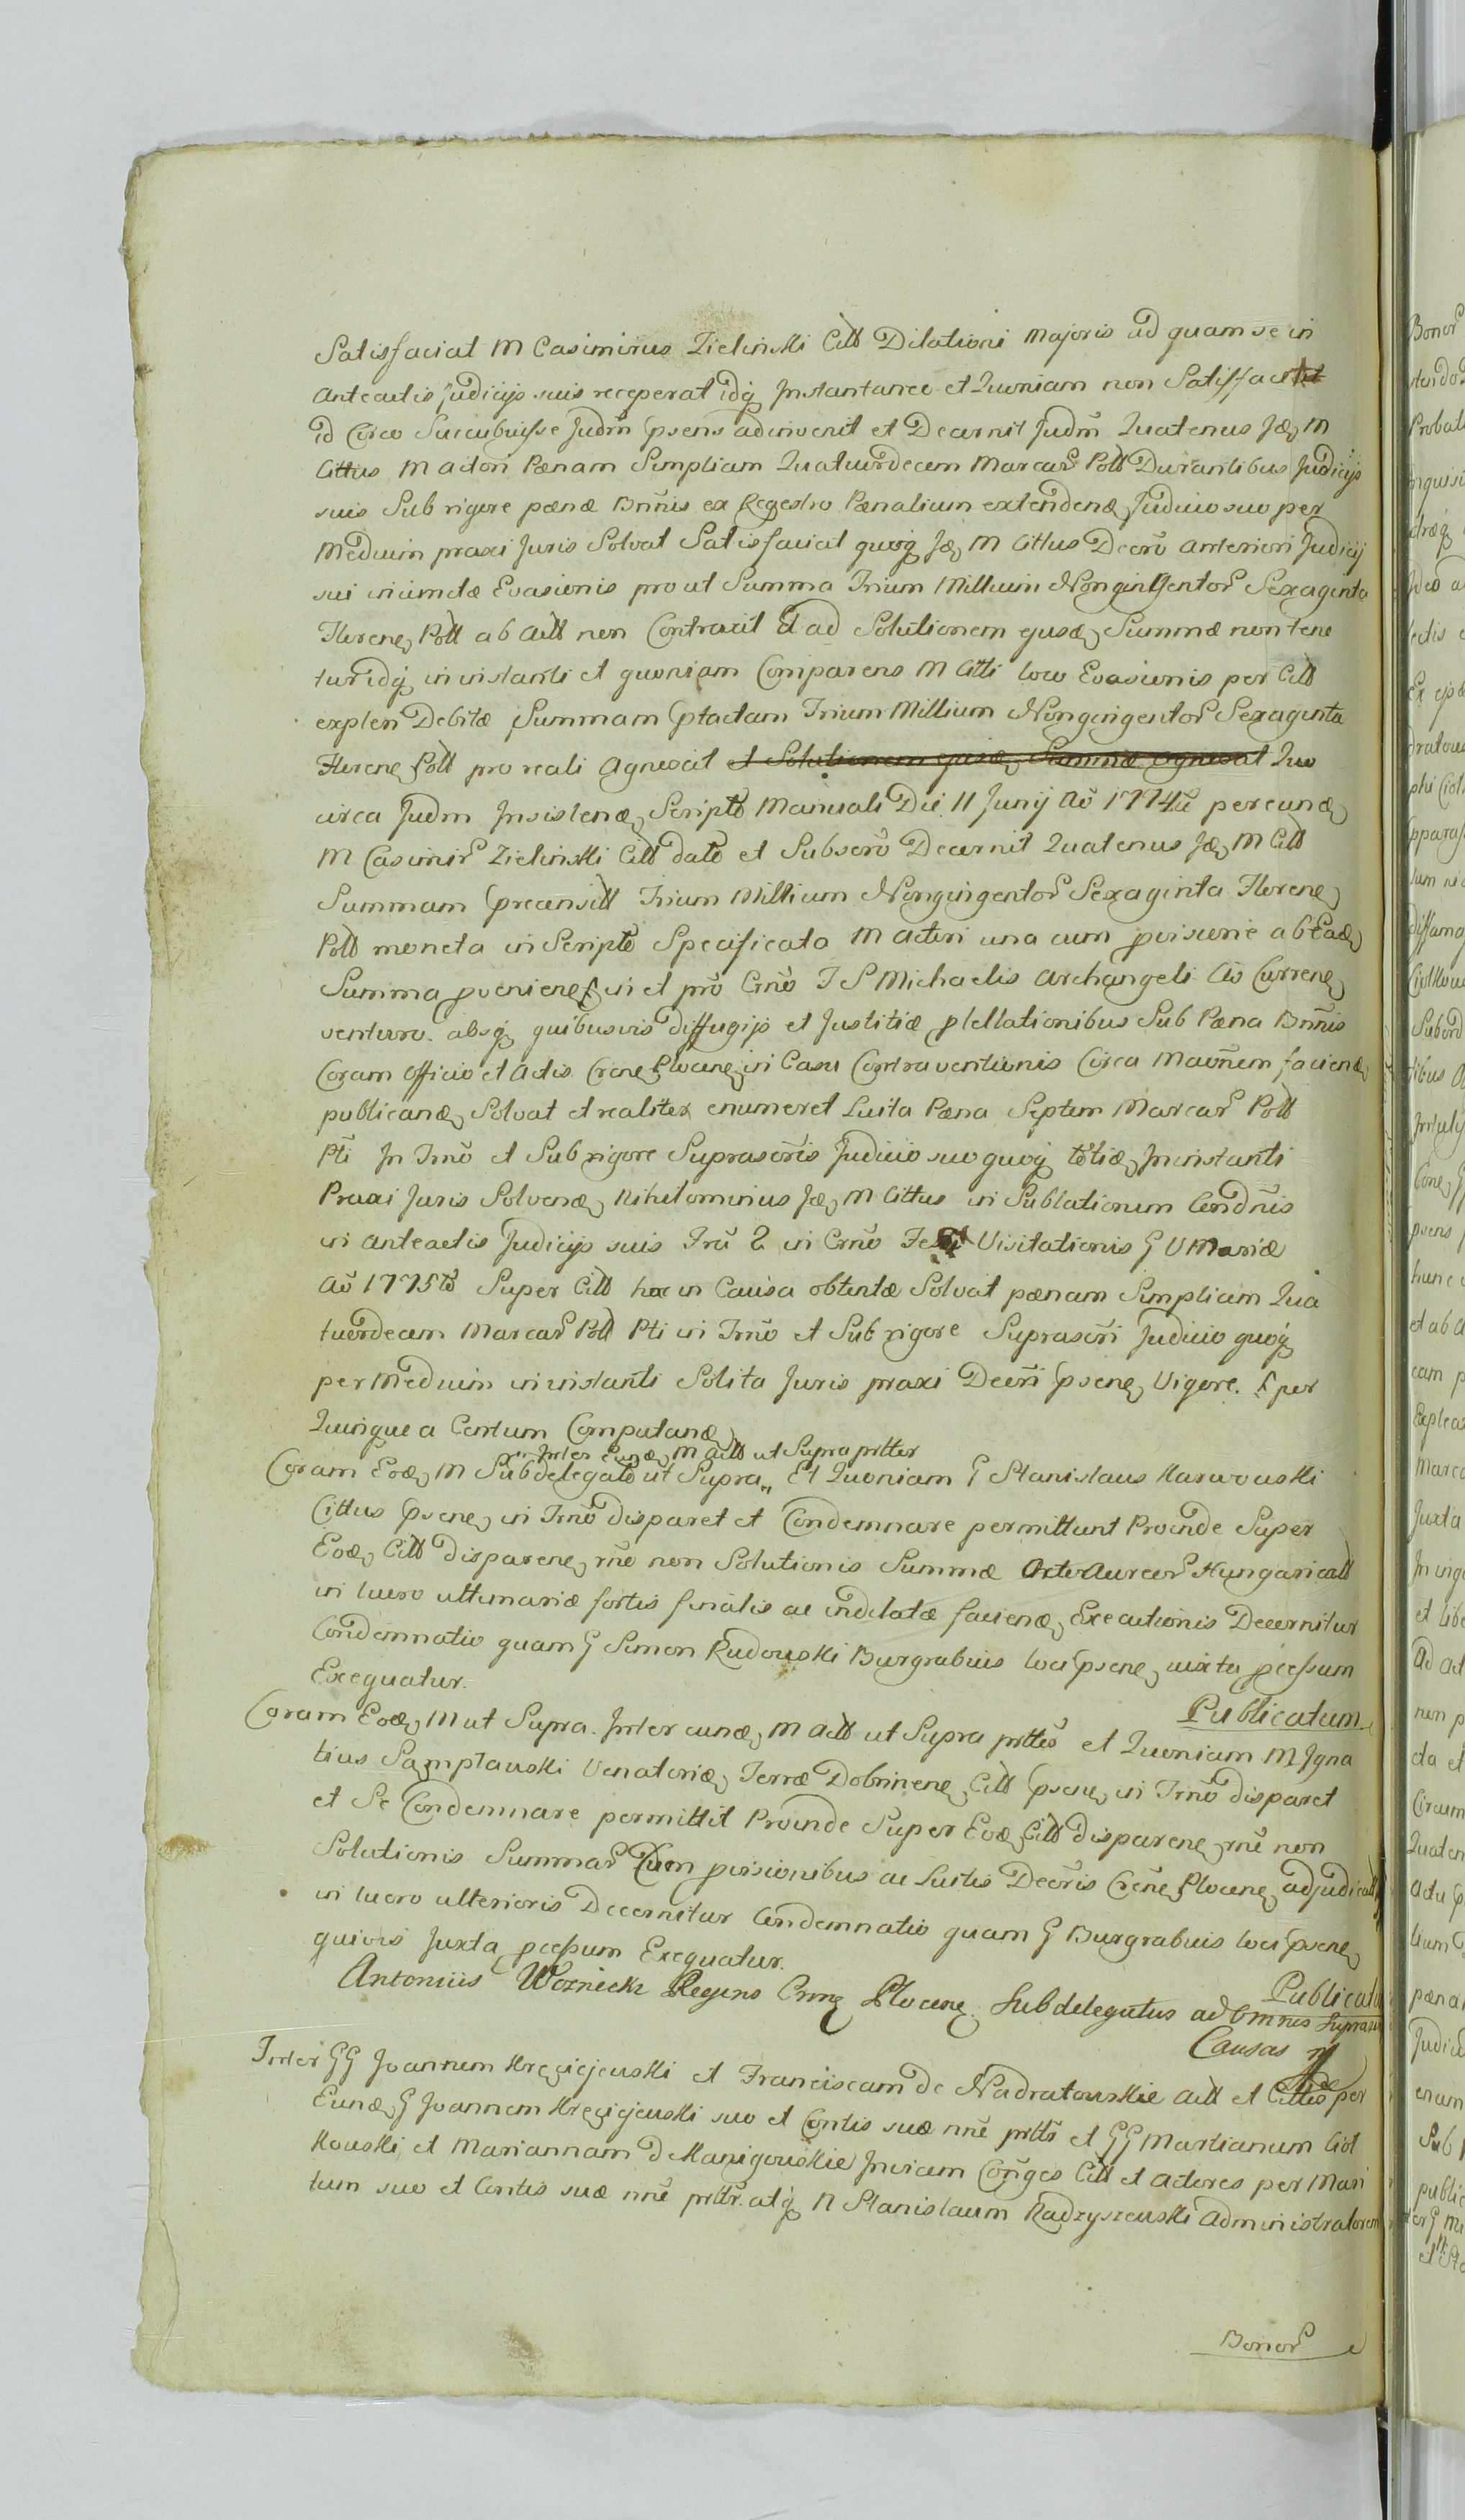 Satisfaciat M Casimirus Zielinski Citt Dilationi Majoris ad quam se in
Anteactis judicijs suis receperat idq Instantanee et Quoniam non Satisfacit
id Circo Succubuisse Judm Psens adinvenit et Decernit Judm Quatenus Id M
Cittus M Actori Pænam Simpliam Quatuordecem Marcar Poll Durantibus Judicijs
suis Sub rigore pænæ Bnnis ex Regestro Pænalium extendenæ Judicio suo per
Medium praxi Juris Solvat Satisfaciat quoq Id M Cittus Decro Anteriori Judicij
sui iniunctæ Evasionis prout Summa Trium Millium Nongingentor Sexaginta
Florene Poll ab Actt non Contraxit et ad Solutionem ejusd Summæ non tene
tur idq in instanti et quoniam Comparens M Citti loco Evasionis per Citt
expleri Debitæ Summam Ptactam Trium Millium Nongingentor Sexaginta
Florene Poll pro reali Agnoscit et Solutionem ejusd Summæ agnoscit Quo
circa Judm Insistend Scripto Manuali Die 11 Junij Ao 1774to per eund
M Casimir Zielinski Citt dato et Subscro Decernit Quatenus Id M Citt
Summam Precensitt Trium Millium Nongingentor Sexaginta Florene
Poll moneta in Scripto Specificata M Actori una cum pvisione ab Ead
Summa pveniene in et pro Crno F S Michaelis Archangeli Ao Currene
venturo absq quibusvis diffugijs et Justitiæ ptellationibus Sub Pæna Bnnis
Coram Officio et Actis Crene Plocene in Casu Contraventionis Circa Maonem faciend
publicand Solvat et realiter enumeret Luita Pæna Septem Marcar Poll
Pti In Trno et Sub rigore Suprascris Judicio suo quoq totid In instanti
Praxi Juris Solvend Nihilominus Id M Cittus in Sublationem Condnis
in anteactis Judicijs suis Fru 2 in Crno Festi Visitationis G V Mariæ
Ao 1775to Super Citt hac in Causa obtentæ Solvat pænam Simpliam Qua
tuordecem Marcar Poll Pti in Trno et Sub rigore Suprascri Judicio quoq
per Medium in instanti Solita Juris praxi Decri Psene Vigore. f per
Quinque a Centum Computand
"Inter Eund M Actt ut Supra prtter
Coram Eod M Subdelegato ut Supra" Et Quoniam G Stanislaus Karwowski
Cittus Psene in Trno disparet et Condemnare permittunt Proinde Super
Eod Citt disparene rne non Solutionis Summæ Octo Aureor Hungaricall
in lucro ultimariæ fortis finalis ac indilatæ faciend Executionis Decernitur
Condemnatio quam G Simon Rudowski Burgrabius loci Psene juxta pcessum
Exequatur.
Publicatum
Coram Eod M ut Supra. Inter eund M Actt ut Supra prttes et Quoniam M Igna
tius Sampławski Venatorid Terræ Dobrinene Citt Psene in Trno disparet
et Se Condemnare permittit Proinde Super Eod Citt disparene rne non
Solutionis Summar Cum pvisionibus ac Luitis Decris Crene Plocene adjudicatt
in lucro ulterioris Decernitur Condemnatio quam G Burgrabius loci Psene
quivis Juxta pcessum Exequatur.
Publicatu
Antonius Woznicki Regens Crne Plocene Subdelegatus ad Omnes Suprascr
Causas
Inter GG Joannem Krzęciejewski et Franciscam de Nadratowskie Actt et Cittos per
Eund G Joannem Kręciejewski suo et Contis suæ nne prtts et GG Martianum Ciot
kowski et Mariannam D Manigowskie Invicem Conges Citt et Actores per Mari
tum suo et Contis suæ nne prttr. atq N Stanislaum Radzyszewski Administratorem
Bonor